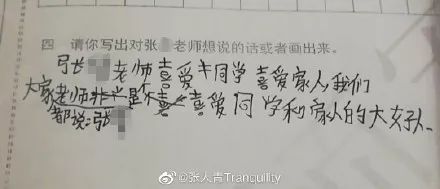 四 请你写出对张老师想说的话或者画出来。
弓长老师喜爱牛同学喜爱家人,我们
大家老师非常是个喜爱同学和家人的大好人。
都说:张
@张人青Tranquility